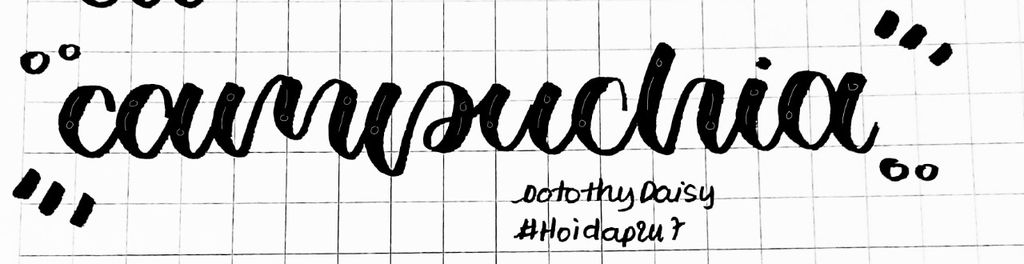 campuchia
DotothyDaisy
#Hoidap247